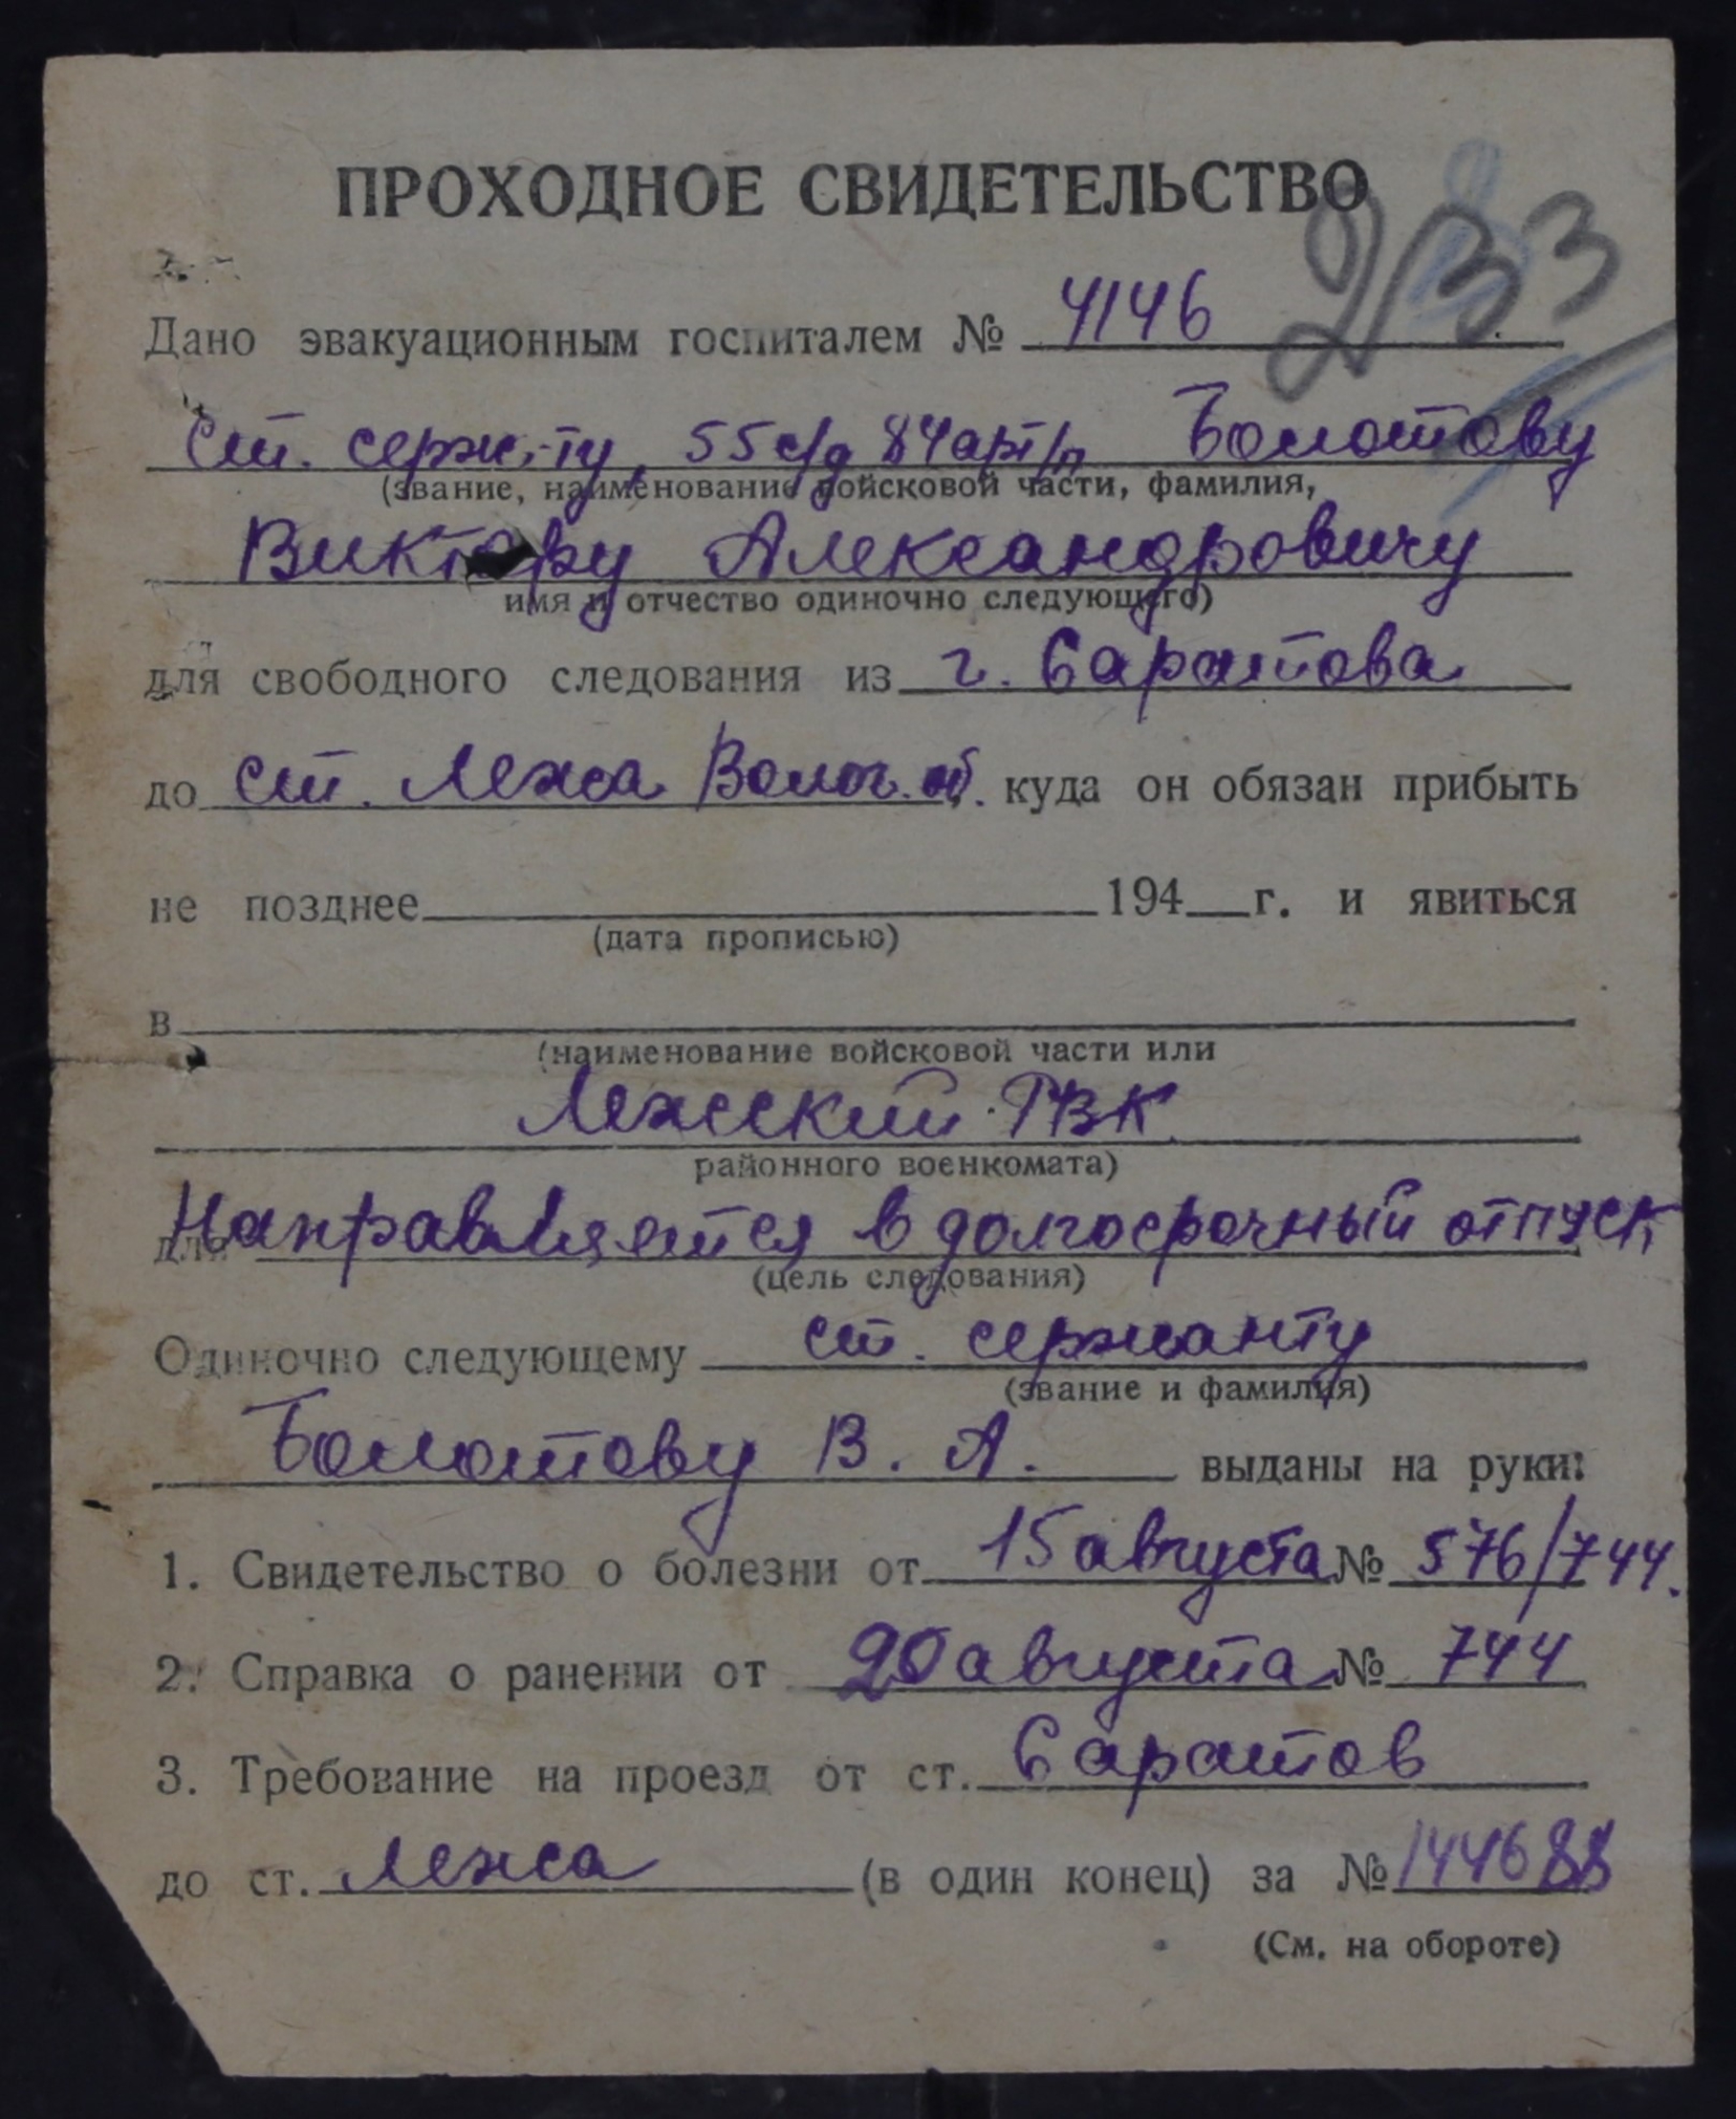 ПРОХОДНОЕ СВИДЕТЕЛЬСТВО
233
Дано эвакуационным госпиталем № 4146
ст. серж-ту, 55 с/д 84 арт/п Болотову
(звание, наименование войсковой части, фамилия,
Виктору Александровичу
имя и отчество одиночно следующего)
для свободного следования из г. Саратова
до ст. Лежа Волог. об. куда он обязан прибыть
не позднее 194 г. и явиться
(дата прописью)
в
(наименование войсковой части или
Лежский РВК
районного военкомата)
для Направляется в долгосрочный отпуск
(цель следования)
Одиночно следующему ст. сержанту
(звание и фамилия)
Болотову В. А. выданы на руки:
1. Свидетельство о болезни от 15 августа № 576/744.
2. Справка о ранении от 20 августа № 744
3. Требование на проезд от ст. Саратов
до ст. Лежа (в один конец) за № 144688
(См. на обороте)